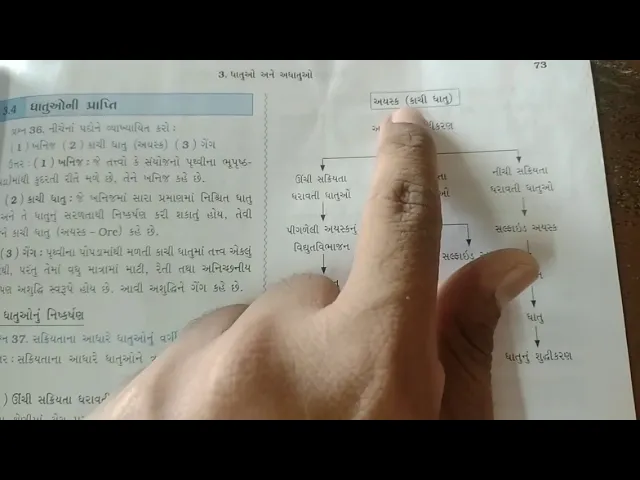 3. ધાતુઓ અને અધાતુઓ
73
3.4 ધાતુઓની પ્રાપ્તિ
પ્રશ્ન 36. નીચેનાં પદોને વ્યાખ્યાયિત કરો :
(1) ખનિજ (2) કાચી ધાતુ (અયસ્ક) (3) ગેંગ
ઉત્તર : (1) ખનિજ : જે તત્ત્વો કે સંયોજનો પૃથ્વીના ભૂપૃષ્ઠ-
માંથી કુદરતી રીતે મળે છે, તેને ખનિજ કહે છે.
(2) કાચી ધાતુ : જે ખનિજમાં સારા પ્રમાણમાં નિશ્ચિત ધાતુ
અને તે ધાતુનું સરળતાથી નિષ્કર્ષણ કરી શકાતું હોય, તેવી
કાચી ધાતુ (અયસ્ક – Ore) કહે છે.
(3) ગેંગ : પૃથ્વીના પોપડામાંથી મળતી કાચી ધાતુમાં તત્ત્વ એકલું
નથી, પરંતુ તેમાં વધુ માત્રામાં માટી, રેતી તથા અનિચ્છનીય
પણ અશુદ્ધિ સ્વરૂપે હોય છે. આવી અશુદ્ધિને ગેંગ કહે છે.
ધાતુઓનું નિષ્કર્ષણ
પ્રશ્ન 37. સક્રિયતાના આધારે ધાતુઓનું
ઉત્તર : સક્રિયતાના આધારે ધાતુઓને
ઊંચી સક્રિયતા
અયસ્ક (કાચી ધાતુ)
ઊંચી સક્રિયતા
ધરાવતી ધાતુઓ
નીચી સક્રિયતા
ધરાવતી ધાતુઓ
પીગળેલી અયસ્કનું
વિદ્યુતવિભાજન
સલ્ફાઇડ અયસ્ક
સલ્ફાઇડ
ધાતુ
ધાતુનું શુદ્ધીકરણ